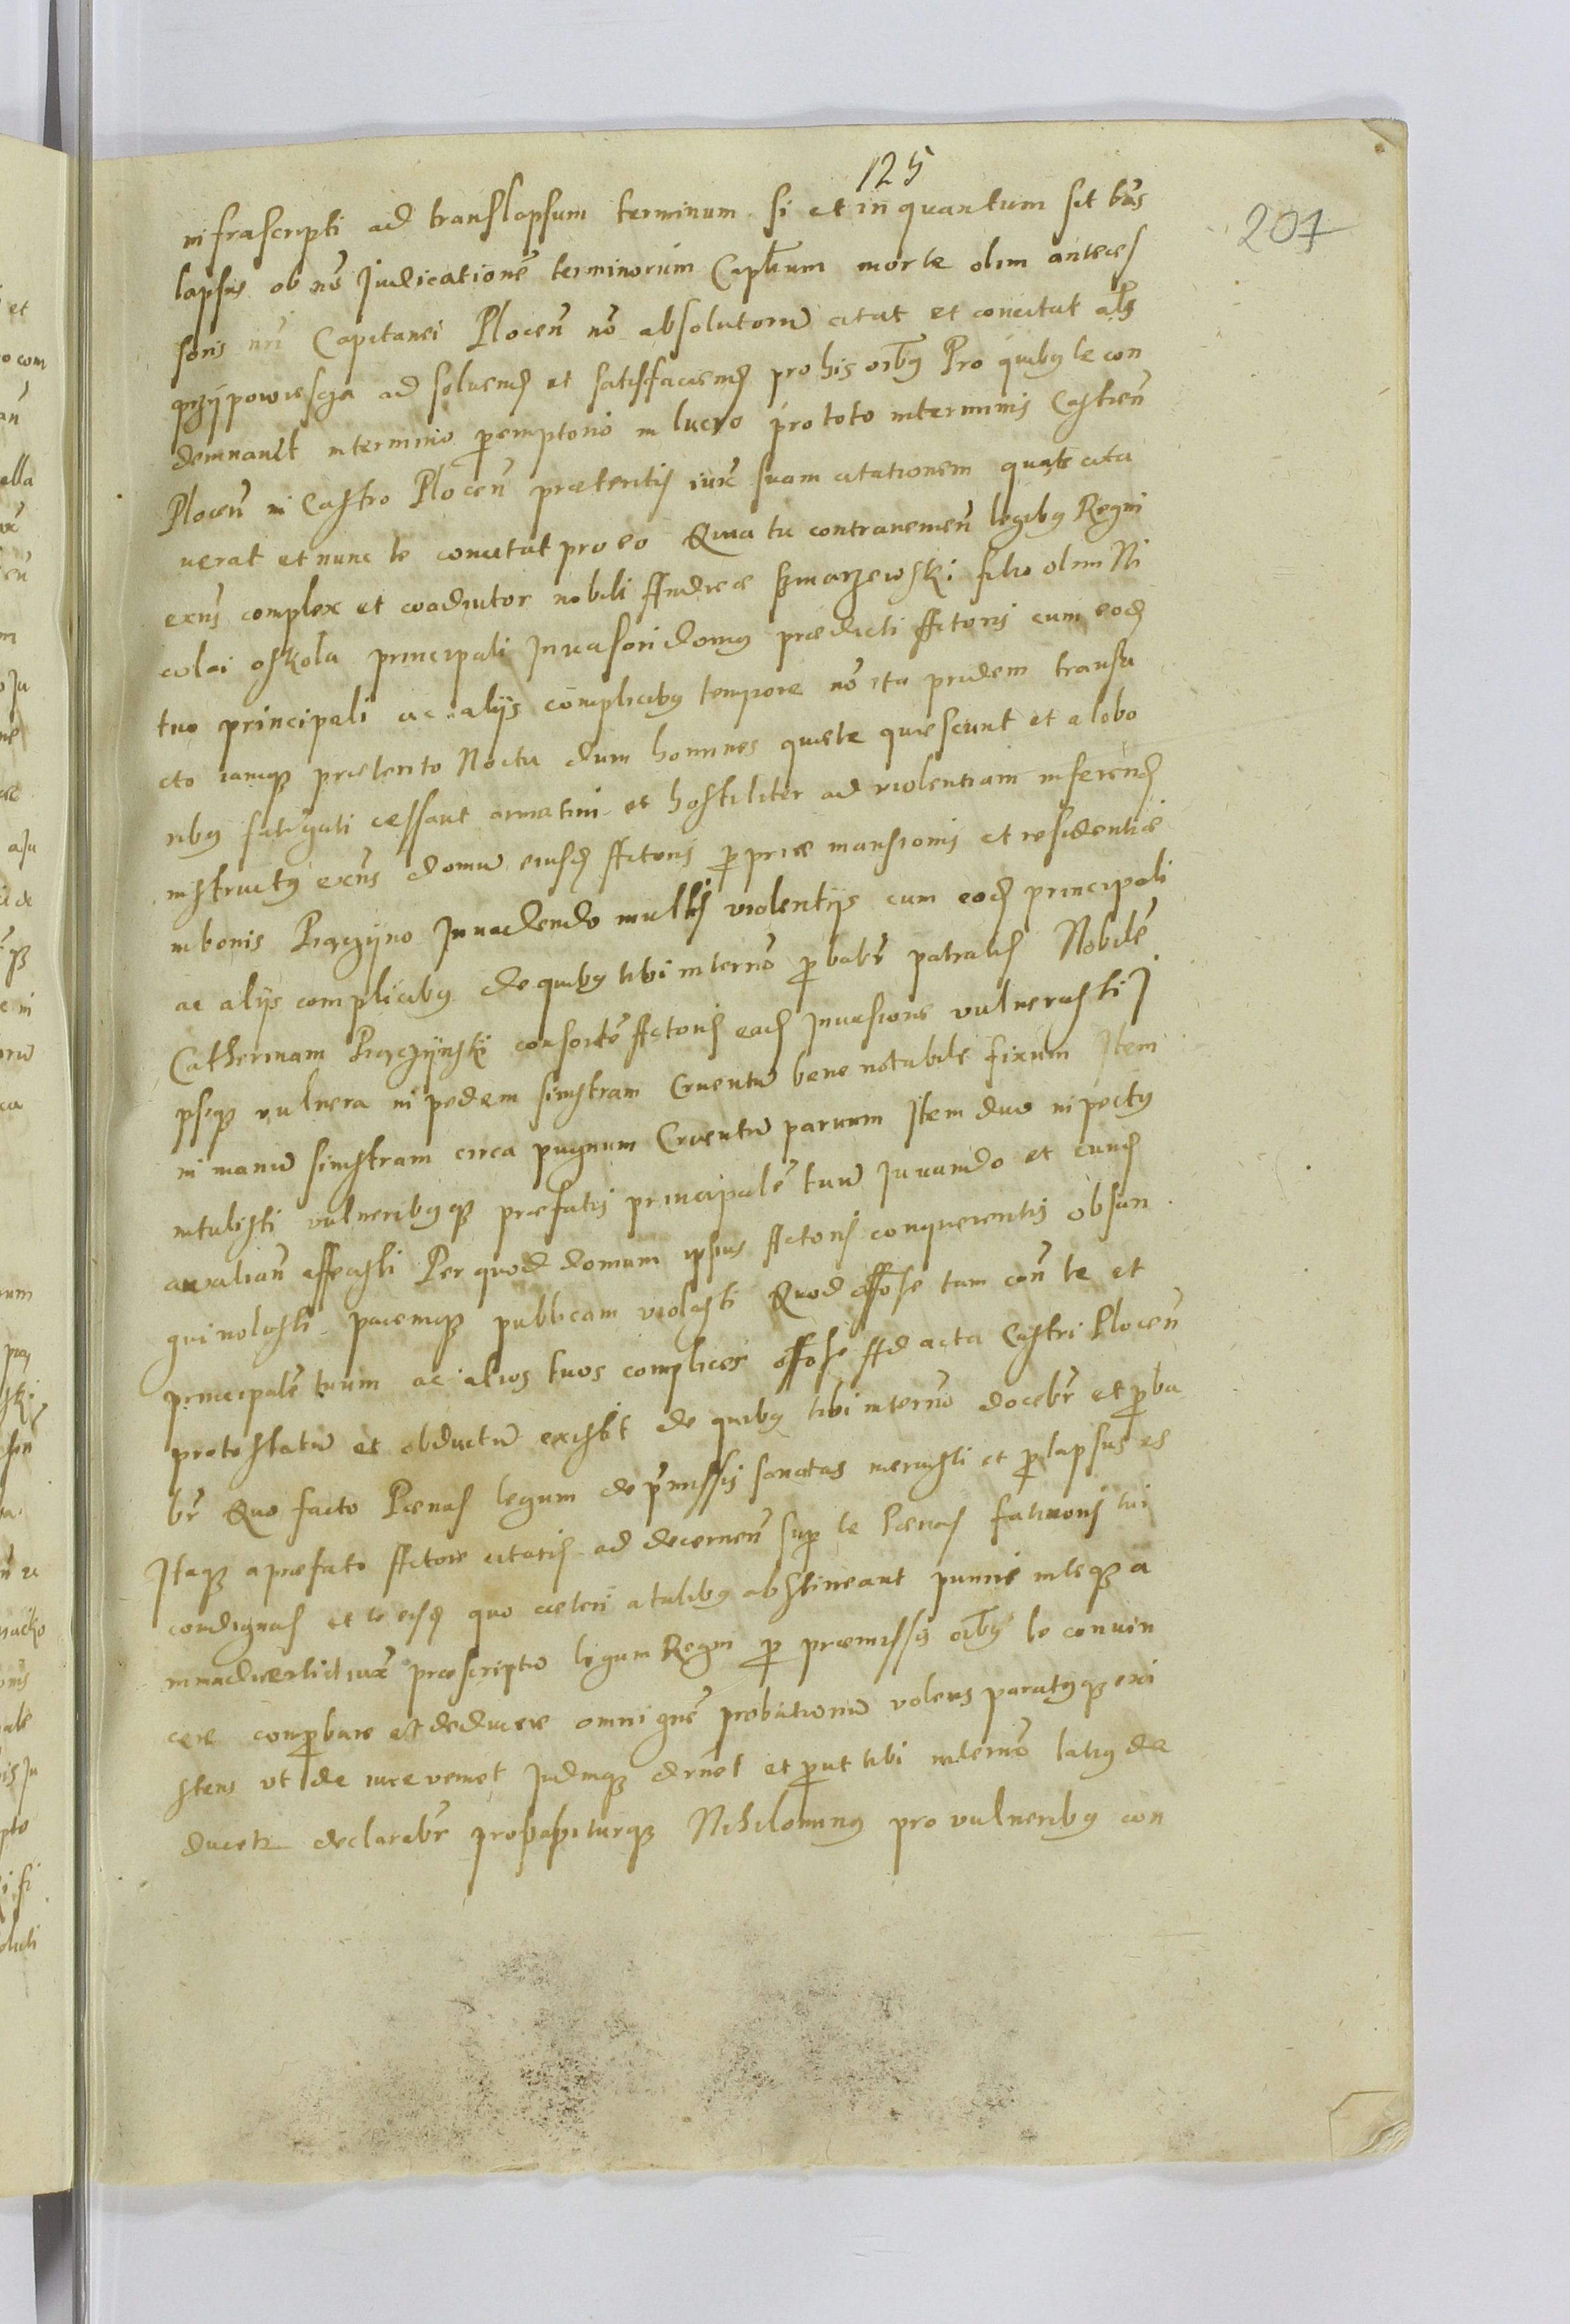 125
207
infrascripti ad translapsum terminum si et in quantum sit trās
lapsus ob nō Judicationē terminorum Capłium morte olim anteceſ
soris nrī Capitanei Plocen̄ nō absolutorū citat et concitat al̄s
przÿpowiescza ad soluend̄ et satisfaciend̄ pro his oībꝯ Pro quibꝯ te con
demnauit in terminio peremptorio in lucro pro toto in terminis Castren̄
Plocen̄ in Castro Plocen̄ præteritis iux̄ suam citationem qua te cita
uerat et nunc te concitat pro eo Quia tu contraueniens legibꝯ Regni
exn̄s complex et coadiutor nobili Andreæ Szmarzewski filio olim Ni
colai oskola principali Inuasori domꝯ prædicti Actoris cum eod̄
tuo principali ac alÿs complicibꝯ tempore nō ita pridem transa
cto iamqꝫ præterito Noctu dum homines quiete quiescunt et a labo
ribꝯ fatigati cessant armatim et hostiliter ad violentiam inferend̄
instructꝯ exn̄s domū eiusd̄ Actoris propriæ mansionis et residentiæ
in bonis Pączÿno Inuadendo multis violentÿs cum eod̄ principali
ac alÿs complicibꝯ de quibꝯ tibi in ternō probabr̄ patratis Nobilē
Catherinam Pączÿnski consortē Actoris ead̄ Inuasione vulnerasti J
pseqꝫ vulnera in pedem sinistram Cruentū bene notabile fixum Item
in manū sinistram circa pugnum Cruentū paruum Item duo in pectꝯ
intulisti vulneribꝯqꝫ præfatis principalē tuū Juuando et eund̄
auxilian̄ affecisti Per quod domum ipsius Actoris conquerentis obsan
guinolasti pacemqꝫ publicam violasti Quod offose tam con̄ te et
principalē tuum ac alios tuos complices offose Ad acta Castri Plocen̄
protestatū et obductū existit de quibꝯ tibi in ternō docebr̄ et proba
br̄ Quo facto Pænas legum de p̄missis sancitas meruisti et prolapsus es
Itaqꝫ a præfato Actore citaris ad decernen̄ super te Pænas facinoris tui
condignas et te eisd̄ quo cæteri a talibꝯ abstineant punire in teqꝫ a
nimaduerti iux̄ præscriptū legum Regni pro præmissis oībꝯ te conuin
cere comprobare et deducere omni gn̄e probationū volens paratꝯqꝫ exi
stens vt de iure veniet Judiuqꝫ drnet et prout tibi in ternō latiꝯ de
ducetr declarabr̄ probabiturqꝫ Nihilominꝯ pro vulneribꝯ con